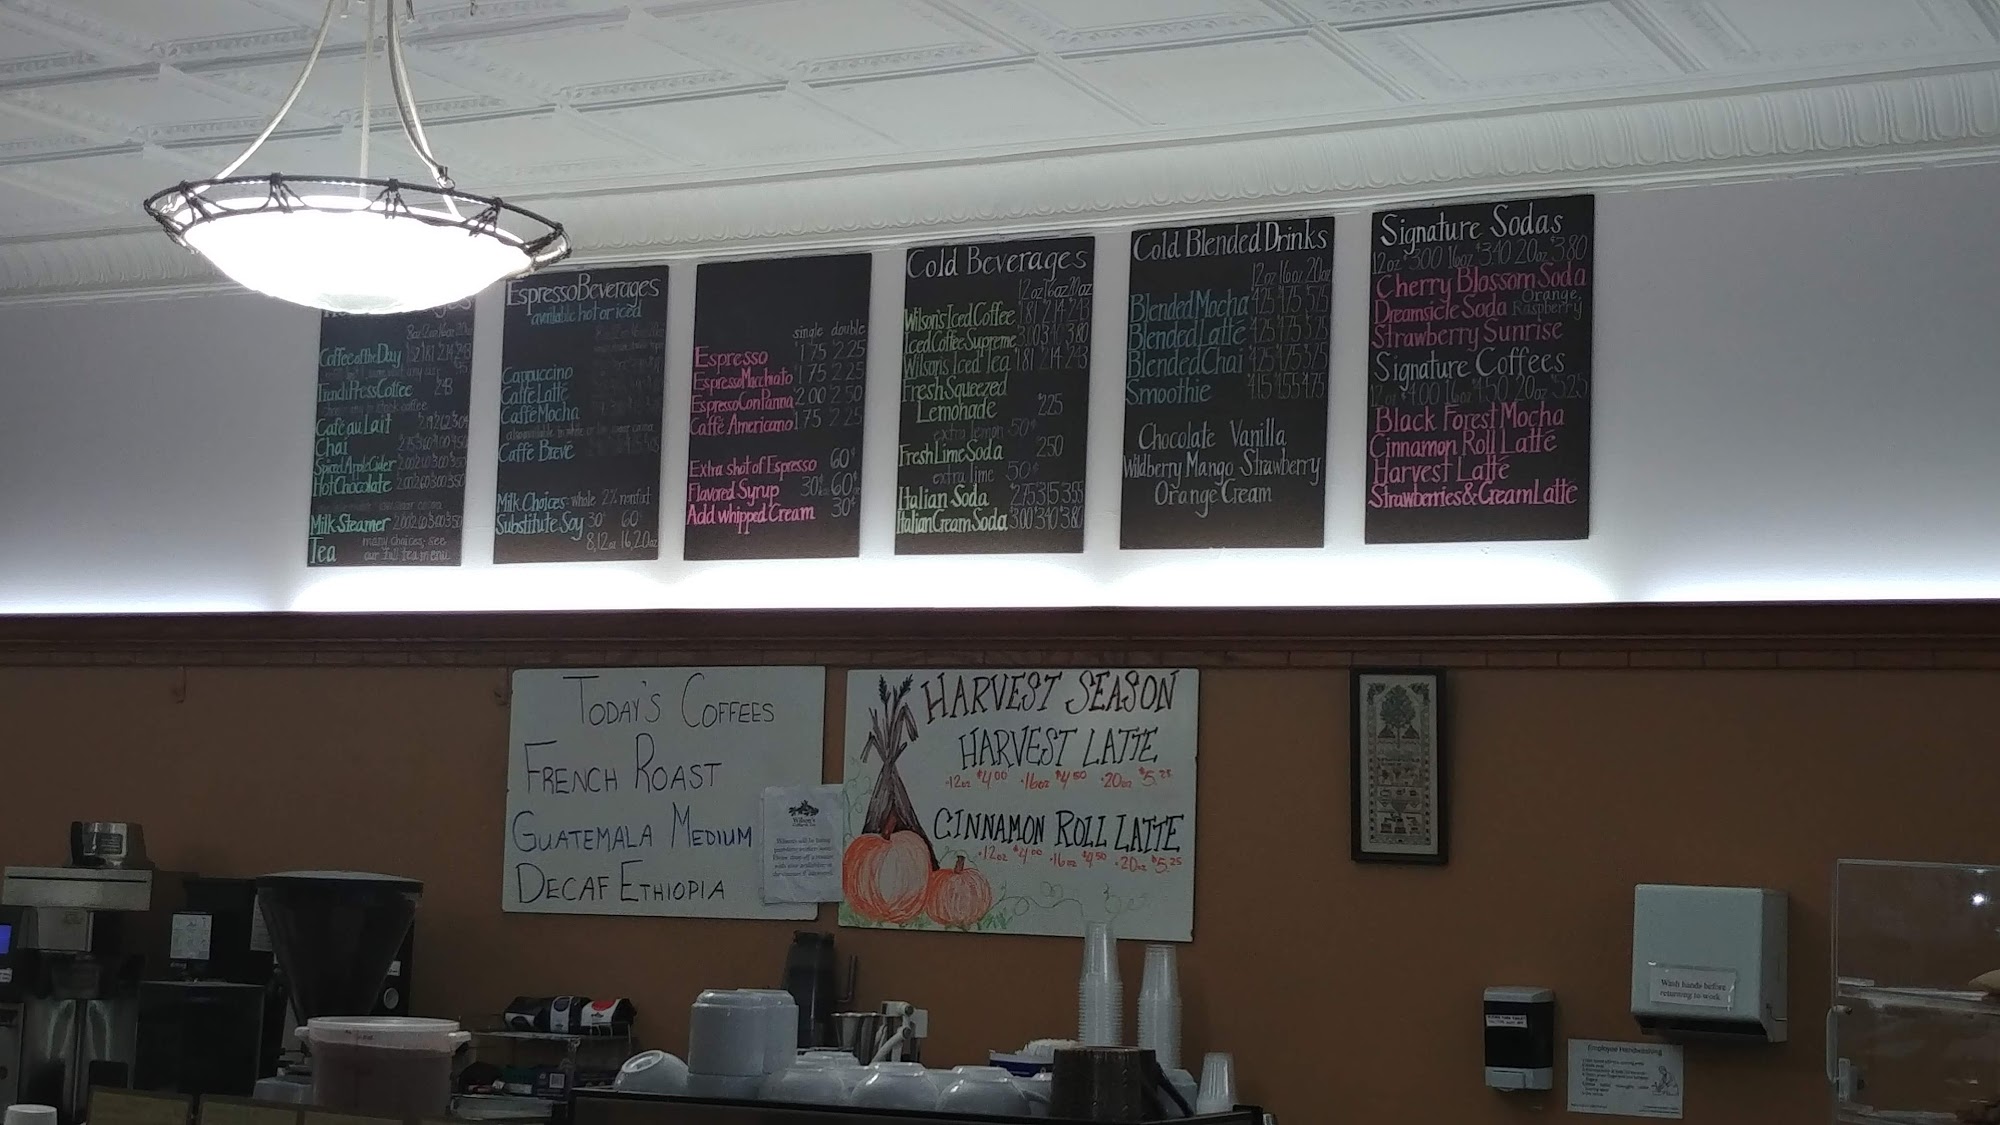 Espresso Beverages
available hot or iced
Cappuccino
Caffe Latte
Caffe Mocha
Caffe Breve
Milk Choices: whole 2% nonfat
Substitute Soy 30¢ 60¢
8,12oz 16,20oz
Coffee of the Day
French Press Coffee 2.43
Café au Lait
Chai
Spiced Apple Cider
Hot Chocolate
Milk Steamer
Tea many choices, see
our full tea menu
single double
Espresso 1.75 2.25
Espresso Macchiato 1.75 2.25
Espresso Con Panna 2.00 2.50
Caffe Americano 1.75 2.25
Extra shot of Espresso 60¢
Flavored Syrup 30¢ 60¢
Add whipped Cream 30¢
Cold Beverages
12oz 16oz 20oz
Wilson's Iced Coffee 1.81 2.14 2.43
Iced Coffee Supreme 3.00 3.40 3.80
Wilson's Iced Tea 1.81 2.14 2.43
Fresh Squeezed
Lemonade $2.25
extra lemon 50¢
Fresh Lime Soda 2.50
extra lime 50¢
Italian Soda 2.75 3.15 3.55
Italian Cream Soda 3.00 3.40 3.80
Cold Blended Drinks
12oz 16oz 20oz
Blended Mocha 4.25 4.75 5.25
Blended Latté 4.25 4.75 5.25
Blended Chai 4.25 4.75 5.25
Smoothie
Chocolate Vanilla
Wildberry Mango Strawberry
Orange Cream
Signature Sodas
12oz $3.00 16oz $3.40 20oz $3.80
Cherry Blossom Soda
Dreamsicle Soda Orange, Raspberry
Strawberry Sunrise
Signature Coffees
12oz $4.00 16oz $4.50 20oz $5.25
Black Forest Mocha
Cinnamon Roll Latté
Harvest Latté
Strawberries & Cream Latté
TODAY'S COFFEES
FRENCH ROAST
GUATEMALA MEDIUM
DECAF ETHIOPIA
Wilson's
HARVEST SEASON
HARVEST LATTE
·12oz $4.00 ·16oz $4.50 ·20oz $5.25
CINNAMON ROLL LATTE
·12oz $4.00 ·16oz $4.50 ·20oz $5.25
Wash hands before
returning to work
Employee Handwashing